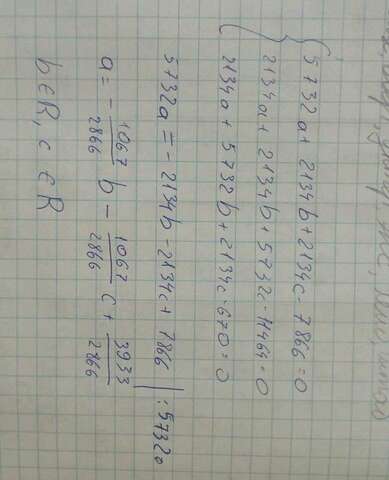 5732a + 2134b + 2134c - 7866 = 0
2134a + 2134b + 5732c - 11464 = 0
2134a + 5732b + 2134c - 670 = 0
5732a = - 2134b - 2134c + 7866 | : 5732
a = - 1067/2866 b - 1067/2866 c + 3933/2866
b∈R, c∈R